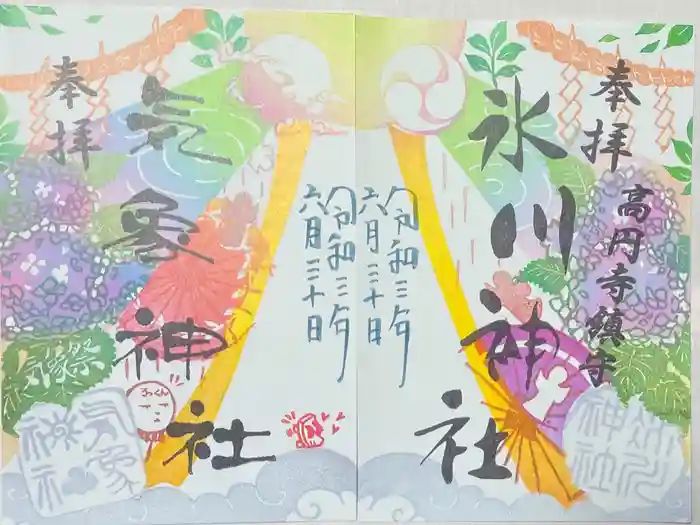 奉拝
高円寺鎮守
氷川神社
令和三年
六月三十日
奉拝
気象神社
令和三年
六月三十日
気象祭
てるくん
気象神社
氷川神社